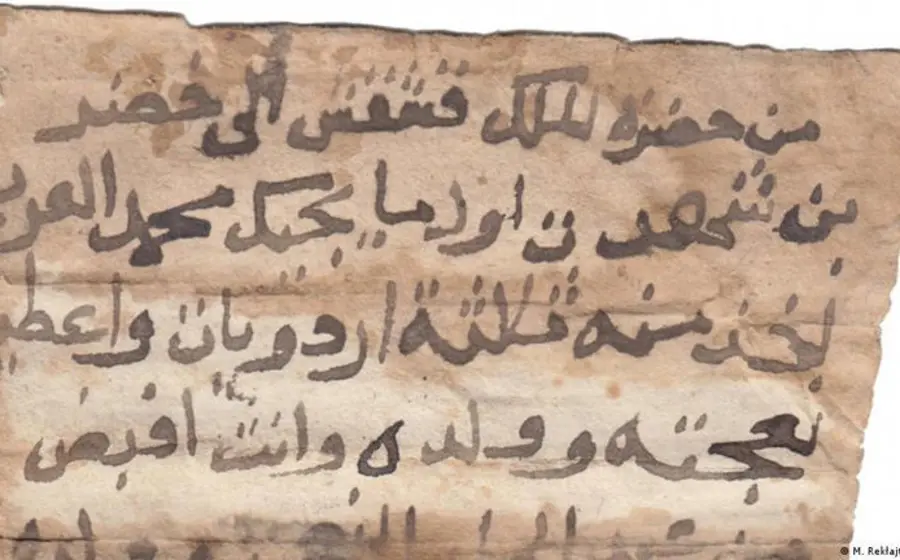 من حضره الملك قشقش الى خضر
بن شهدت اول ما يجيك محمد العرب
تخذ منه ثلثة اردويات واعطي
نعجته وولده وانت اقبض
© M. Rekłajt